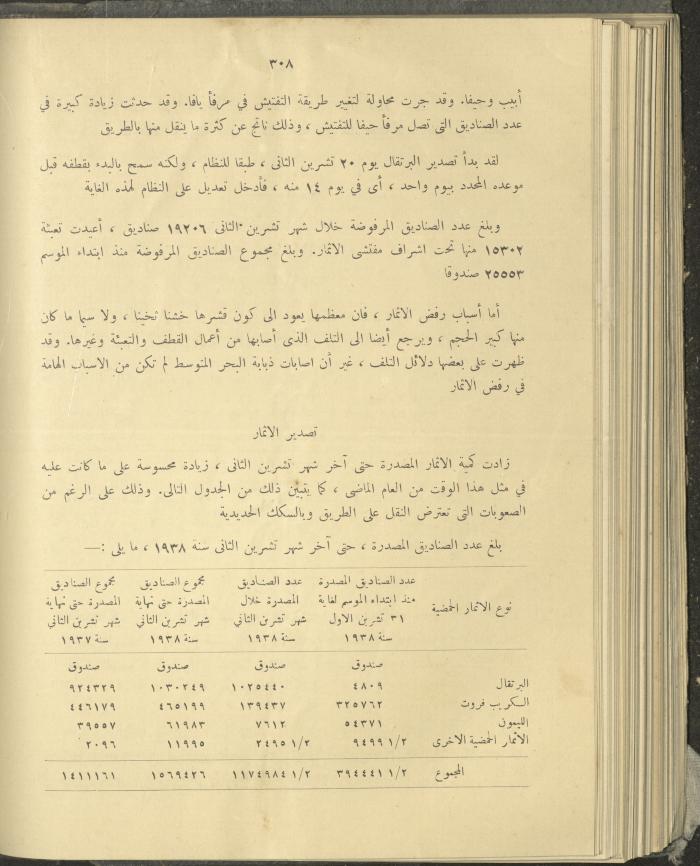 ٣٠٨
أبيب وحيفا. وقد جرت محاولة لتغيير طريقة التفتيش في مرفأ يافا. وقد حدثت زيادة كبيرة في
عدد الصناديق التى تصل مرفأ حيفا للتفتيش ، وذلك ناتج عن كثرة ما ينقل منها بالطريق
لقد بدأ تصدير البرتقال يوم ٢٠ تشرين الثانى ، طبقا للنظام ، ولكنه سمح بالبدء بقطفه قبل
موعده المحدد بيوم واحد ، أى في يوم ١٤ منه ، فأدخل تعديل على النظام لهذه الغاية
وبلغ عدد الصناديق المرفوضة خلال شهر تشرين الثانى ١٩٢٠٦ صناديق ، أعيدت تعبئة
١٥٣٠٢ منها تحت اشراف مفتشى الاثمار. وبلغ مجموع الصناديق المرفوضة منذ ابتداء الموسم
٢٥٥٥٣ صندوقا
أما أسباب رفض الاثمار ، فان معظمها يعود الى كون قشرها خشنا ثخينا ، ولا سيما ما كان
منها كبير الحجم ، ويرجع أيضا الى التلف الذى أصابها من أعمال القطف والتعبئة وغيرها. وقد
ظهرت على بعضها دلائل التلف ، غير أن اصابات ذبابة البحر المتوسط لم تكن من الاسباب الهامة
في رفض الاثمار
تصدير الاثمار
زادت كمية الاثمار المصدرة حتى آخر شهر تشرين الثانى ، زيادة محسوسة على ما كانت عليه
في مثل هذا الوقت من العام الماضى ، كما يتبين ذلك من الجدول التالى. وذلك على الرغم من
الصعوبات التى تعترض النقل على الطريق وبالسكك الحديدية
بلغ عدد الصناديق المصدرة ، حتى آخر شهر تشرين الثانى سنة ١٩٣٨ ، ما يلى :—
عدد الصناديق المصدرة عدد الصناديق مجموع الصناديق مجموع الصناديق
نوع الاثمار الحمضية منذ ابتداء الموسم لغاية المصدرة خلال المصدرة حتى نهاية المصدرة حتى نهاية
٣١ تشرين الاول شهر تشرين الثاني شهر تشرين الثاني شهر تشرين الثاني
سنة ١٩٣٨ سنة ١٩٣٨ سنة ١٩٣٨ سنة ١٩٣٧
صندوق صندوق صندوق صندوق
البرتقال ٤٨٠٩ ١٠٢٥٤٤٠ ١٠٣٠٢٤٩ ٩٢٤٣٢٩
السكريب فروت ٣٢٥٧٦٢ ١٣٩٤٣٧ ٤٦٥١٩٩ ٤٤٦١٧٩
الليمون ٥٤٣٧١ ٧٦١٢ ٦١٩٨٣ ٣٩٥٥٧
الاثمار الحمضية الاخرى ٩٤٩٩ ١/٢ ٢٤٩٥ ١/٢ ١١٩٩٥ ٢٠٩٦
المجموع ٣٩٤٤٤١ ١/٢ ١١٧٤٩٨٤ ١/٢ ١٥٦٩٤٢٦ ١٤١١١٦١